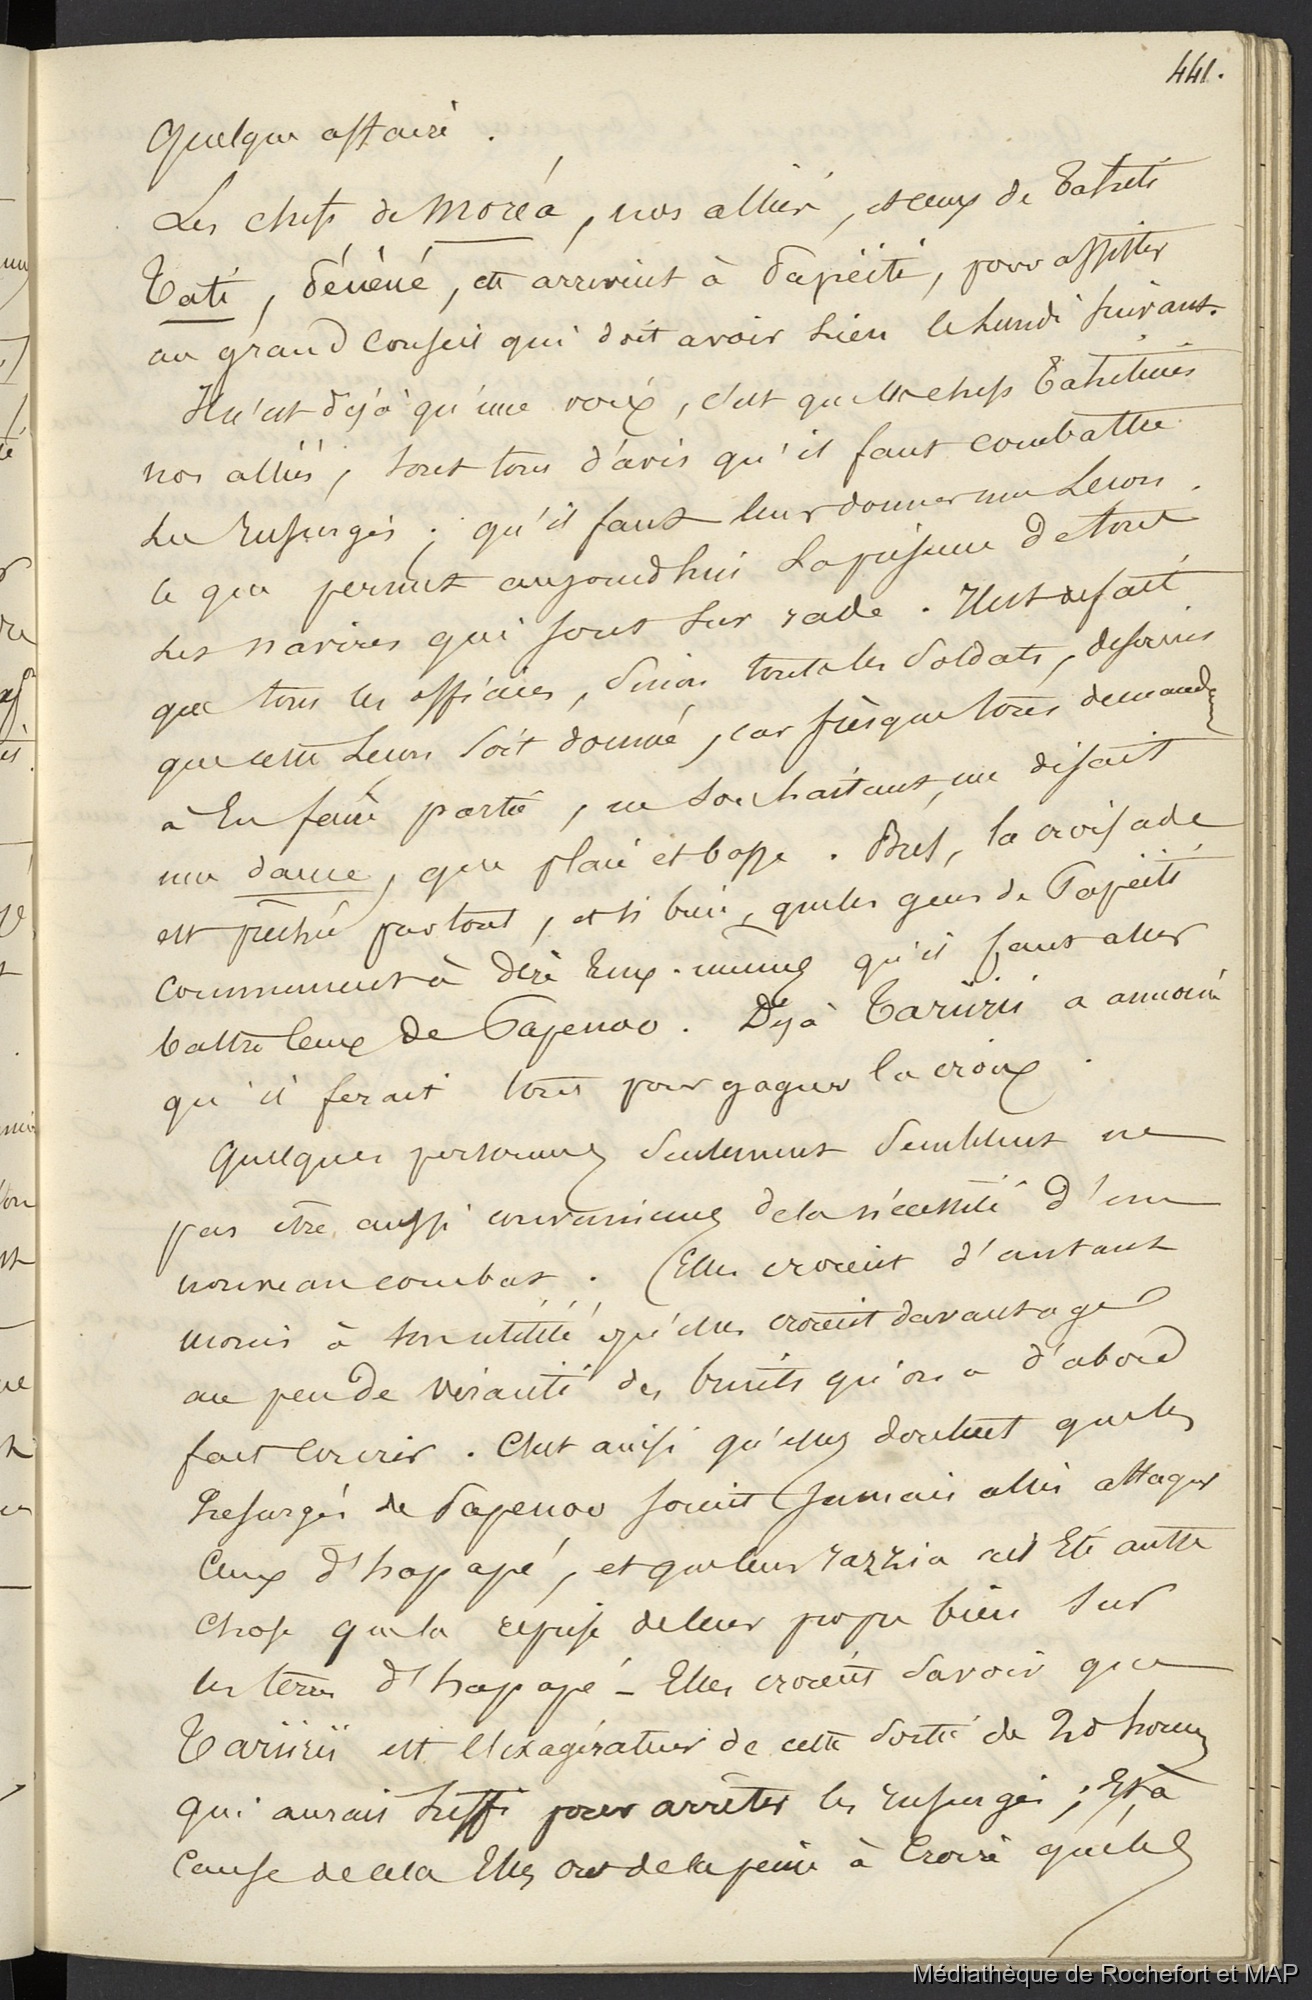 441.
quelque affaire.
Les chefs de Moréa, nos alliés, et ceux de Tahiti
Tati, Pénéné, etc arrivent à Papéïti, pour assister
au grand conseil qui doit avoir lieu le lundi suivant.
Il n'est déjà qu'une voix, c'est que les chefs Tahitiens
nos alliés, sont tous d'avis qu'il faut combattre
les Insurgés; qu'il faut leur donner une Leçon.
ce que permet aujourd'hui la présence de tous
les navires qui sont sur rade. Il est de fait
que tous les officiers, sinon tous les soldats, désirent
que cette Leçon soit donnée, car presque tous demandent
à En faire partie, ne souhaitant, me disait
une dame, que plaie et bosse. Bref, la croisade
est prêchée partout, et si bien, que les gens de Papéïti
commencent à dire Eux-mêmes qu'il faut aller
battre Ceux de Papenoo. Déjà Tariirii a annoncé
qu'il ferait tout pour gagner la croix.
Quelques personnes seulement semblent ne
pas être aussi convaincues de la nécessité d'un
nouveau combat. Elles croient d'autant
moins à son utilité qu'elles croient davantage
au peu de véracité des bruits qu'on a d'abord
fait Courir. C'est ainsi qu'elles doutent que les
Insurgés de Papenoo soient Jamais allés attaquer
Ceux d'hapapé, et que leur razzia ait Eté autre
Chose que la reprise de leur propre bien sur
les terres d'hapapé - Elles croient savoir que
Tariirii est l'exagérateur de cette sortie de 20 hommes
qui aurait suffi pour arrêter les Insurgés; Et à
Cause de cela Elles ont de la peine à Croire qu'elles
Médiathèque de Rochefort et MAP